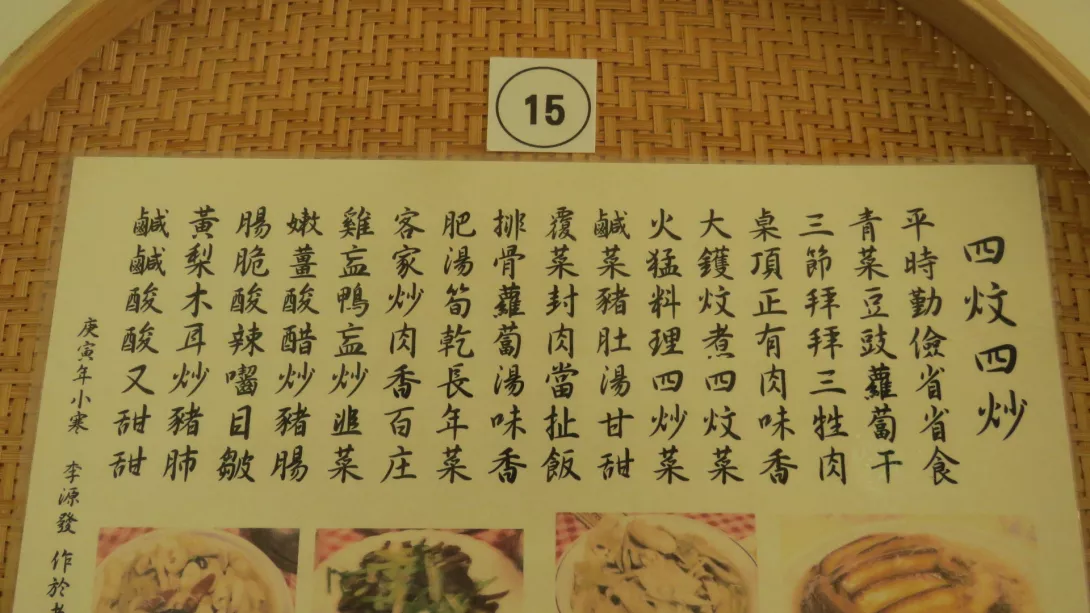 15
四炆四炒
平時勤儉省省食
青菜豆豉蘿蔔干
三節拜拜三牲肉
桌頂正有肉味香
大鑊炆煮四炆菜
火猛料理四炒菜
鹹菜豬肚湯甘甜
覆菜封肉當扯飯
排骨蘿蔔湯味香
肥湯筍乾長年菜
客家炒肉香百庄
雞衁鴨衁炒韭菜
嫩薑酸醋炒豬腸
腸脆酸辣嚙目皺
黃梨木耳炒豬肺
鹹鹹酸酸又甜甜
庚寅年小寒 李源發 作於